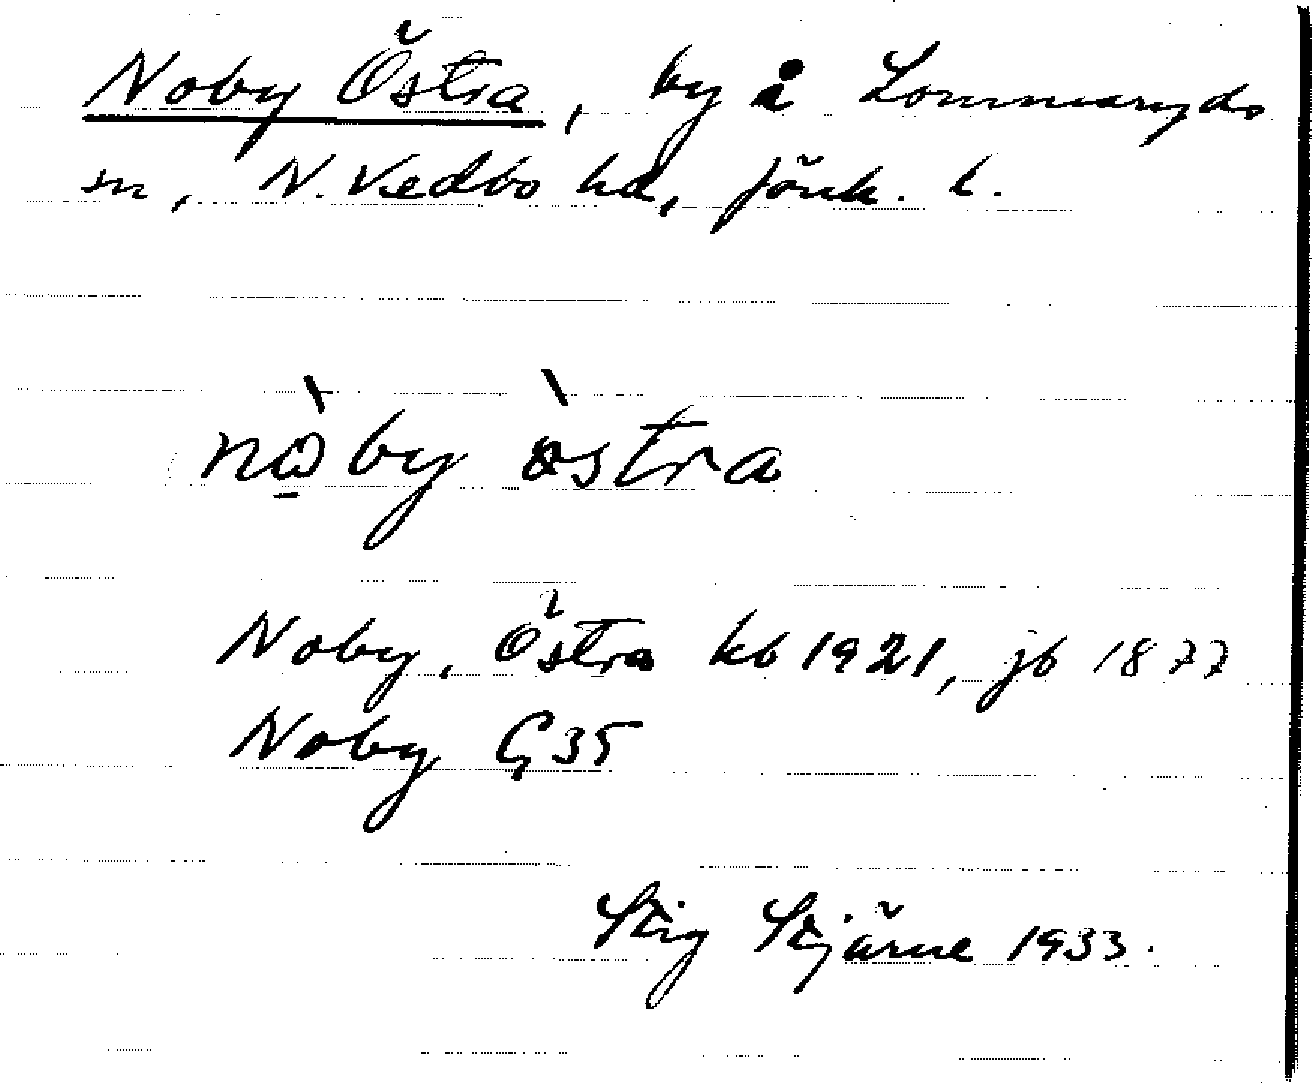 Noby Östra, by i Lommaryds
sn, N. Vedbo hd, Jönk. l.
nò̱by òstra
Noby, Östra kb 1921, jb 1877
Noby G 35
Stig Stjärne 1933.